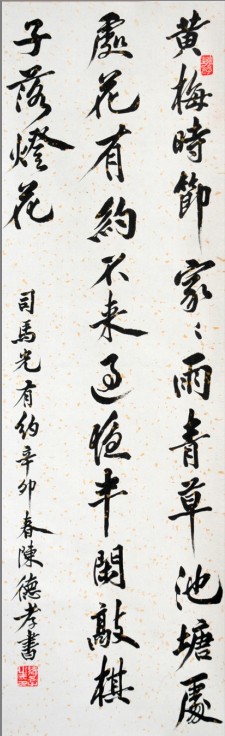 黄梅時節家々雨青草池塘處
處花有約不来過夜半閑敲棋
子落燈花
司馬光有約辛卯春陳德孝書